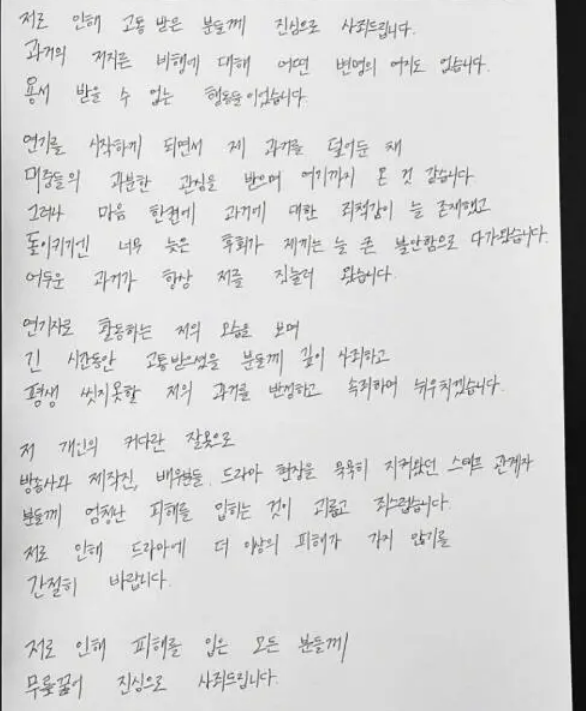 저로 인해 고통 받은 분들께 진심으로 사죄드립니다.
과거의 저지른 비행에 대해 어떤 변명의 여지도 없습니다.
용서 받을 수 없는 행동들이었습니다.
연기를 시작하게 되면서 제 과거를 덮어둔 채
대중들의 과분한 관심을 받으며 여기까지 온 것 같습니다
그러나 마음 한켠에 과거에 대한 죄책감이 늘 존재했고
돌이키기엔 너무 늦은 후회가 제게는 늘 큰 불안함으로 다가왔습니다.
어두운 과거가 항상 저를 짓눌러 왔습니다.
연기자로 활동하는 저의 모습을 보며
긴 시간동안 고통받으셨을 분들께 깊이 사죄하고
평생 씻지못할 저의 과거를 반성하고 속죄하며 뉘우치겠습니다.
저 개인의 커다란 잘못으로
방송사와 제작진, 배우들, 드라마 현장을 묵묵히 지켜왔던 스태프 관계자
분들께 엄청난 피해를 입히는 것이 괴롭고 죄스럽습니다.
저로 인해 드라마에 더 이상의 피해가 가지 않기를
간절히 바랍니다.
저로 인해 피해를 입은 모든 분들께
무릎꿇어 진심으로 사죄드립니다.